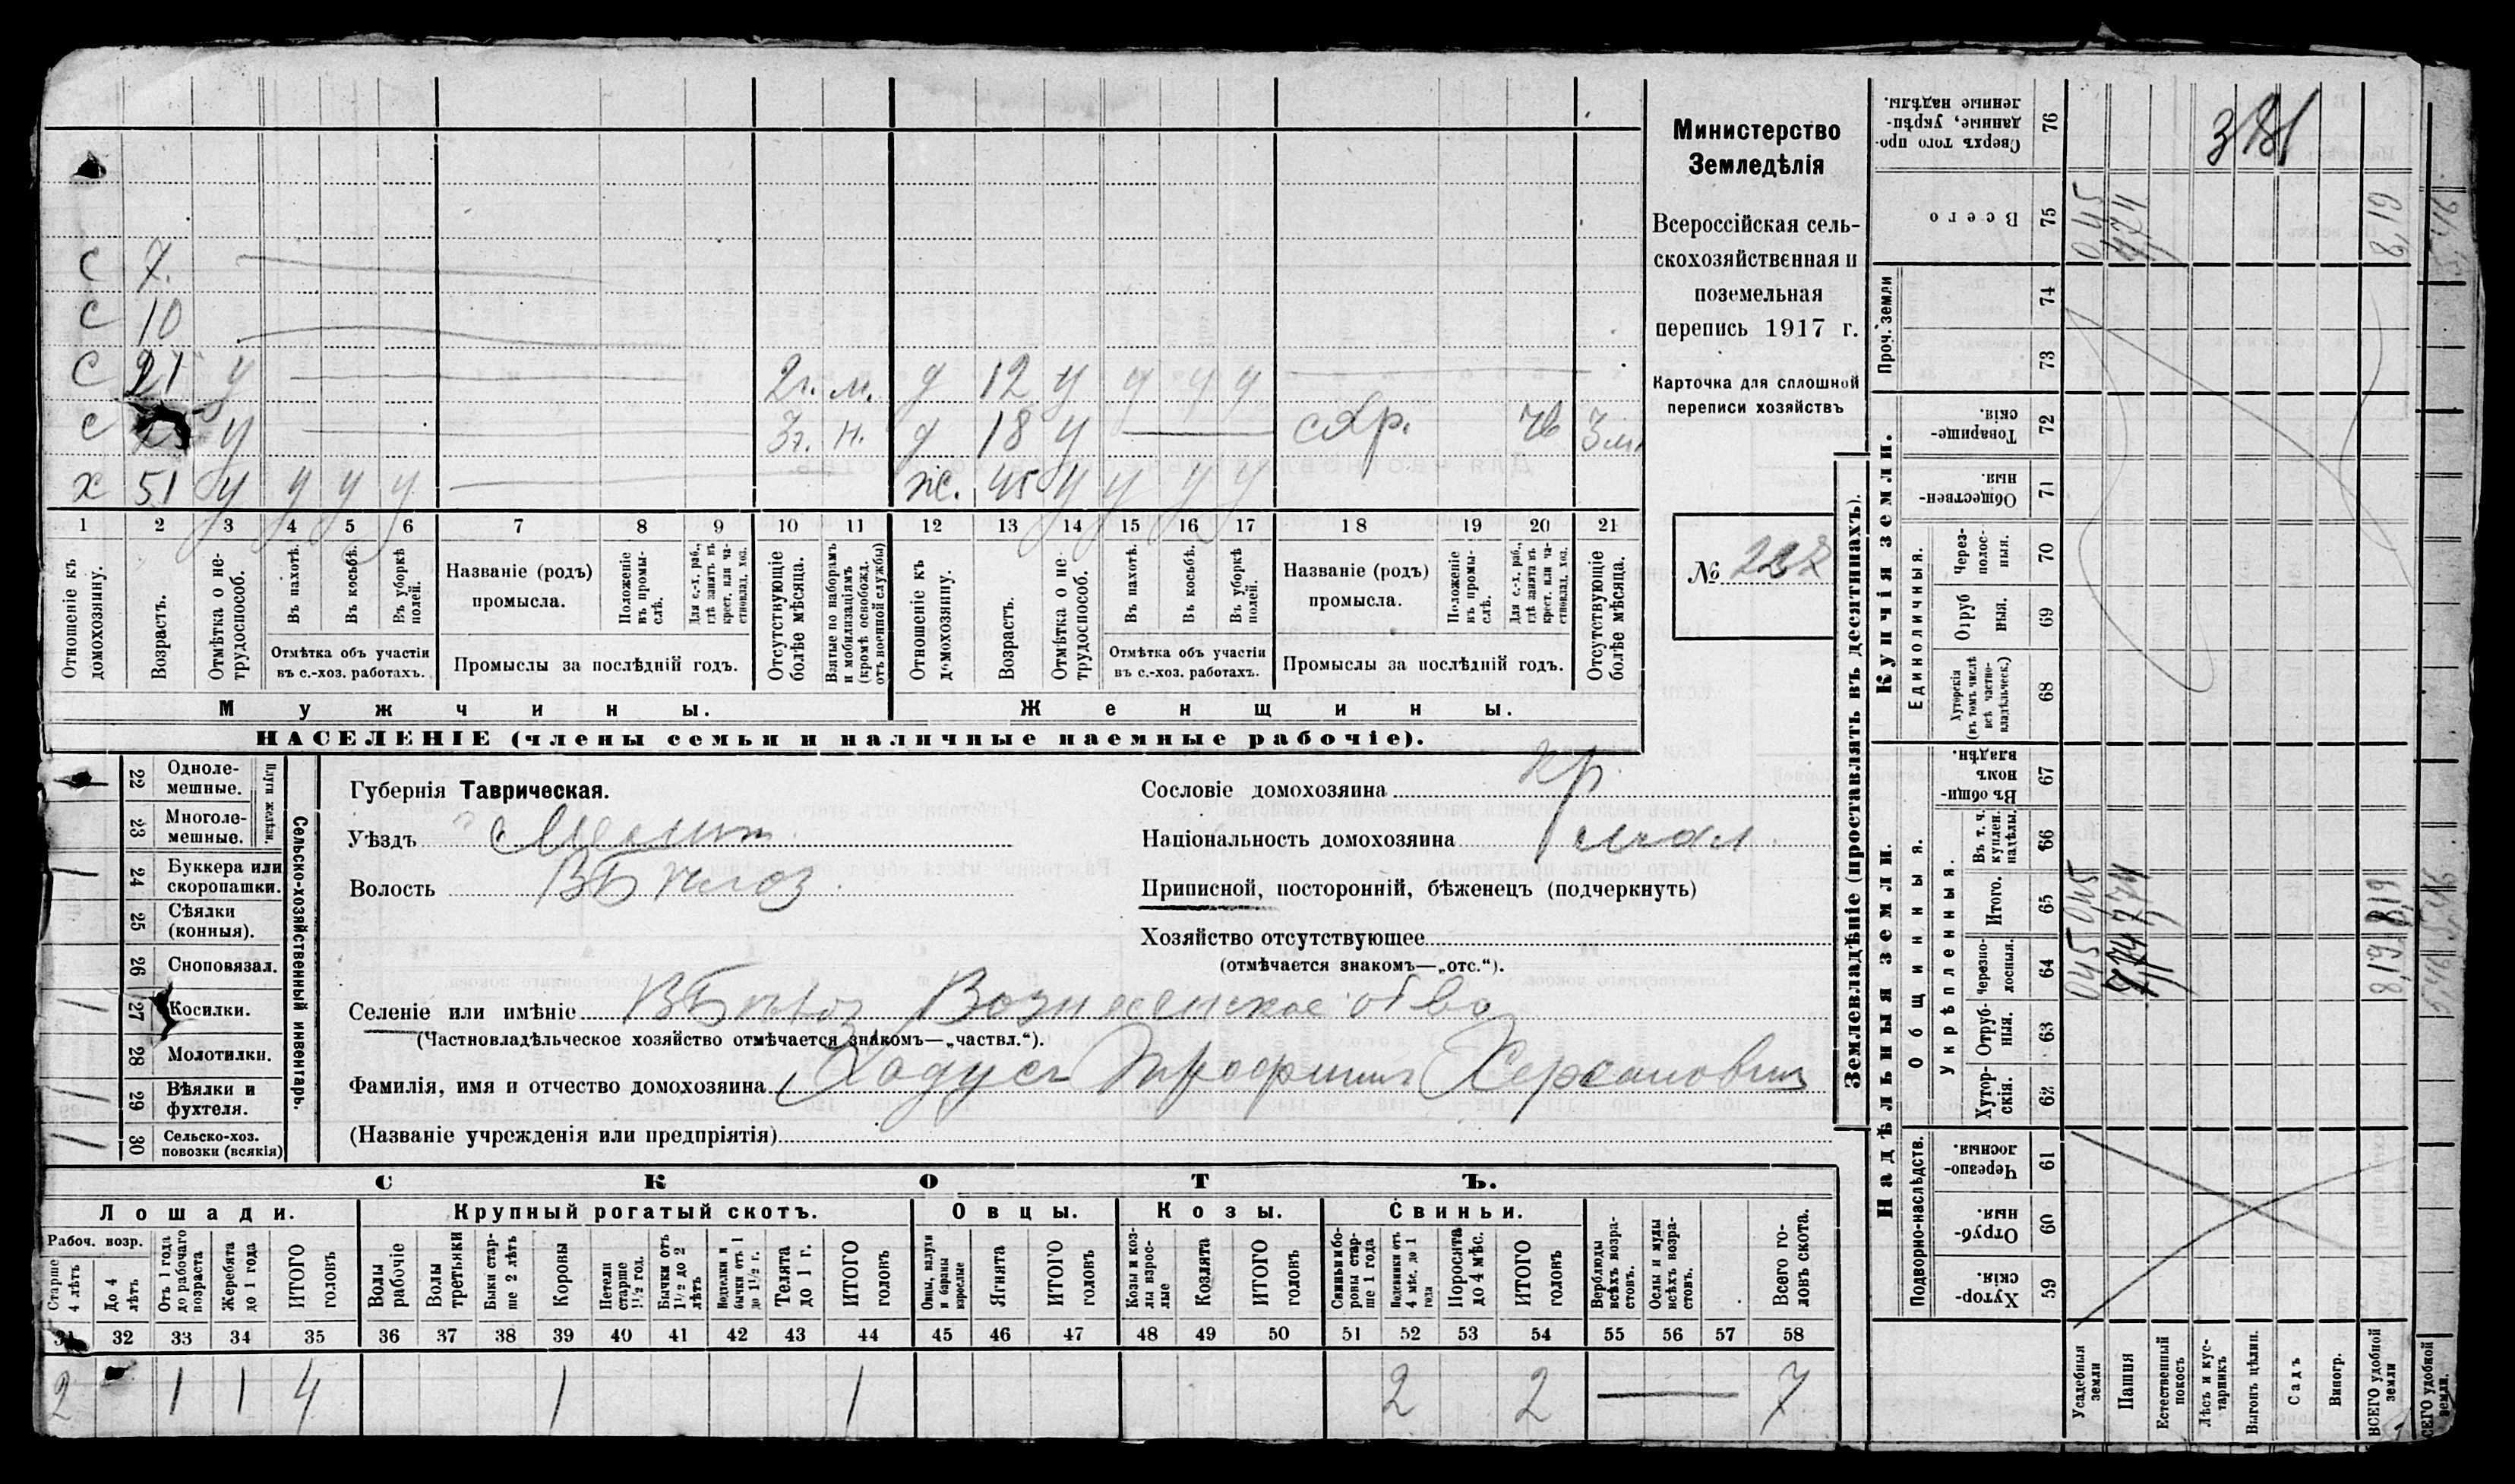 Министерство
Земледѣлія
Всероссійская сель-
скохозяйственная и
поземельная
перепись 1917 г.
Карточка для сплошной
переписи хозяйствъ
№
С 7.
С 10
С 21 у 2г. м. д 12 у у у у
С у 3г. н. д 18 у 3 м.
х 51 у у у у ж. 45 у у у у
1 2 3 4 5 6 7 8 9 10 11 12 13 14 15 16 17 18 19 20 21
Отношеніе къ домохозяину.
Возрастъ.
Отмѣтка о не-трудоспособ.
Въ пахотѣ.
Въ косьбѣ.
Въ уборкѣ полей.
Отмѣтка объ участіи
въ с.-хоз. работахъ.
Названіе (родъ)
промысла.
Положеніе въ промы-слѣ.
Для с.-х. раб., гдѣ занятъ въ крест. или ча-стновлад. хоз.
Промыслы за послѣдній годъ.
Отсутствующіе болѣе мѣсяца.
Взятые по наборамъ и мобилизаціямъ (кромѣ освобожд. отъ военной службы)
Отношеніе къ домохозяину.
Возрастъ.
Отмѣтка о не-трудоспособ.
Въ пахотѣ.
Въ косьбѣ.
Въ уборкѣ полей.
Отмѣтка объ участіи
въ с.-хоз. работахъ.
Названіе (родъ)
промысла.
Положеніе въ промы-слѣ.
Для с.-х. раб., гдѣ занята въ крест. или ча-стновлад. хоз.
Промыслы за послѣдній годъ.
Отсутствующіе болѣе мѣсяца.
Мужчины. Женщины.
НАСЕЛЕНІЕ (члены семьи и наличные наемные рабочіе).
Сельско-хозяйственный инвентарь.
Плуги желѣзн.
22 Однолемешные.
23 Многолемешные.
24 Буккера или скоропашки. 1
25 Сѣялки (конныя).
26 Сноповязал.
27 Косилки. 1
28 Молотилки.
29 Вѣялки и фухтеля. 1
30 Сельско-хоз. повозки (всякія) 1
Губернія Таврическая.
Уѣздъ Мелит.
Волость ВБѣлоз.
Сословіе домохозяина кр.
Національность домохозяина мал.
Приписной, посторонній, бѣженецъ (подчеркнуть)
Хозяйство отсутствующее
(отмѣчается знакомъ—„отс.“).
Селеніе или имѣніе ВБѣлоз Вознесенское об-во
(Частновладѣльческое хозяйство отмѣчается знакомъ—„частвл.“).
Фамилія, имя и отчество домохозяина Хадусъ Трофимъ
(Названіе учрежденія или предпріятія)
СКОТЪ.
Лошади. Крупный рогатый скотъ. Овцы. Козы. Свиньи.
Рабоч. возр.
Старше 4 лѣтъ
До 4 лѣтъ
Отъ 1 года до рабочаго возраста
Жеребята до 1 года
ИТОГО головъ
Волы рабочіе
Волы третьяки
Быки стар-ше 2 лѣтъ
Коровы
Нетели старше 1½ год.
Бычки отъ 1½ до 2 лѣтъ
Нетели и бычки отъ 1 до 1½ г.
Телята до 1 г.
ИТОГО головъ
Овцы, валухи и бараны взрослые
Ягнята
ИТОГО головъ
Козы и коз-лы взрос-лые
Козлята
ИТОГО головъ
Свиньи и бо-ровы стар-ше 1 года
Подсвинки отъ 4 мѣс. до 1 года
Поросята до 4 мѣс.
ИТОГО головъ
Верблюды всѣхъ возра-стовъ.
Ослы и мулы всѣхъ возра-стовъ.
Всего го-ловъ скота.
31 32 33 34 35 36 37 38 39 40 41 42 43 44 45 46 47 48 49 50 51 52 53 54 55 56 57 58
2 1 1 4 1 1 2 2 7
Землевладѣніе (проставлять въ десятинахъ).
Купчія земли.
Надѣльныя земли.
Сверхъ того про-данные, укрѣп-ленные надѣлы. 76
Всего 75 0,45 7,74 8,19
Проч. земли 74 73
Товарище-скія. 72
Обществен-ныя. 71
Единоличныя.
Через-полос-ныя. 70
Отруб ныя. 69
Хуторскія (въ томъ числѣ всѣ частно-владѣльческ.) 68
Общинныя.
Въ общи-номъ владѣн. 67
Укрѣпленныя.
Въ т. ч. куплен. надѣлы. 66
Итого. 65 0,45 7,74 8,19
Черезпо-лосныя. 64 0,45 7,74 8,19
Отруб-ныя. 63
Хутор-скія. 62
Подворно-наслѣдств.
Черезпо-лосныя 61
Отруб-ныя. 60
Хутор-скія. 59
Усадебныя земли
Пашня
Естественный покосъ
Лѣсъ и кус-тарникъ
Выгонъ цѣлин.
Садъ
Виногр.
ВСЕГО удобной земли
ВСЕГО удобной земли.
381